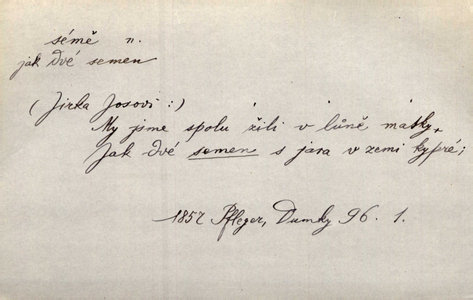 sémě n.
jak dvé semen
(Jirka Josovi :)
My jsme spolu žili v lůně mátky,
Jak dvé semen s jára v zemi kypré;
1857 Pfleger, Dumky 96. 1.